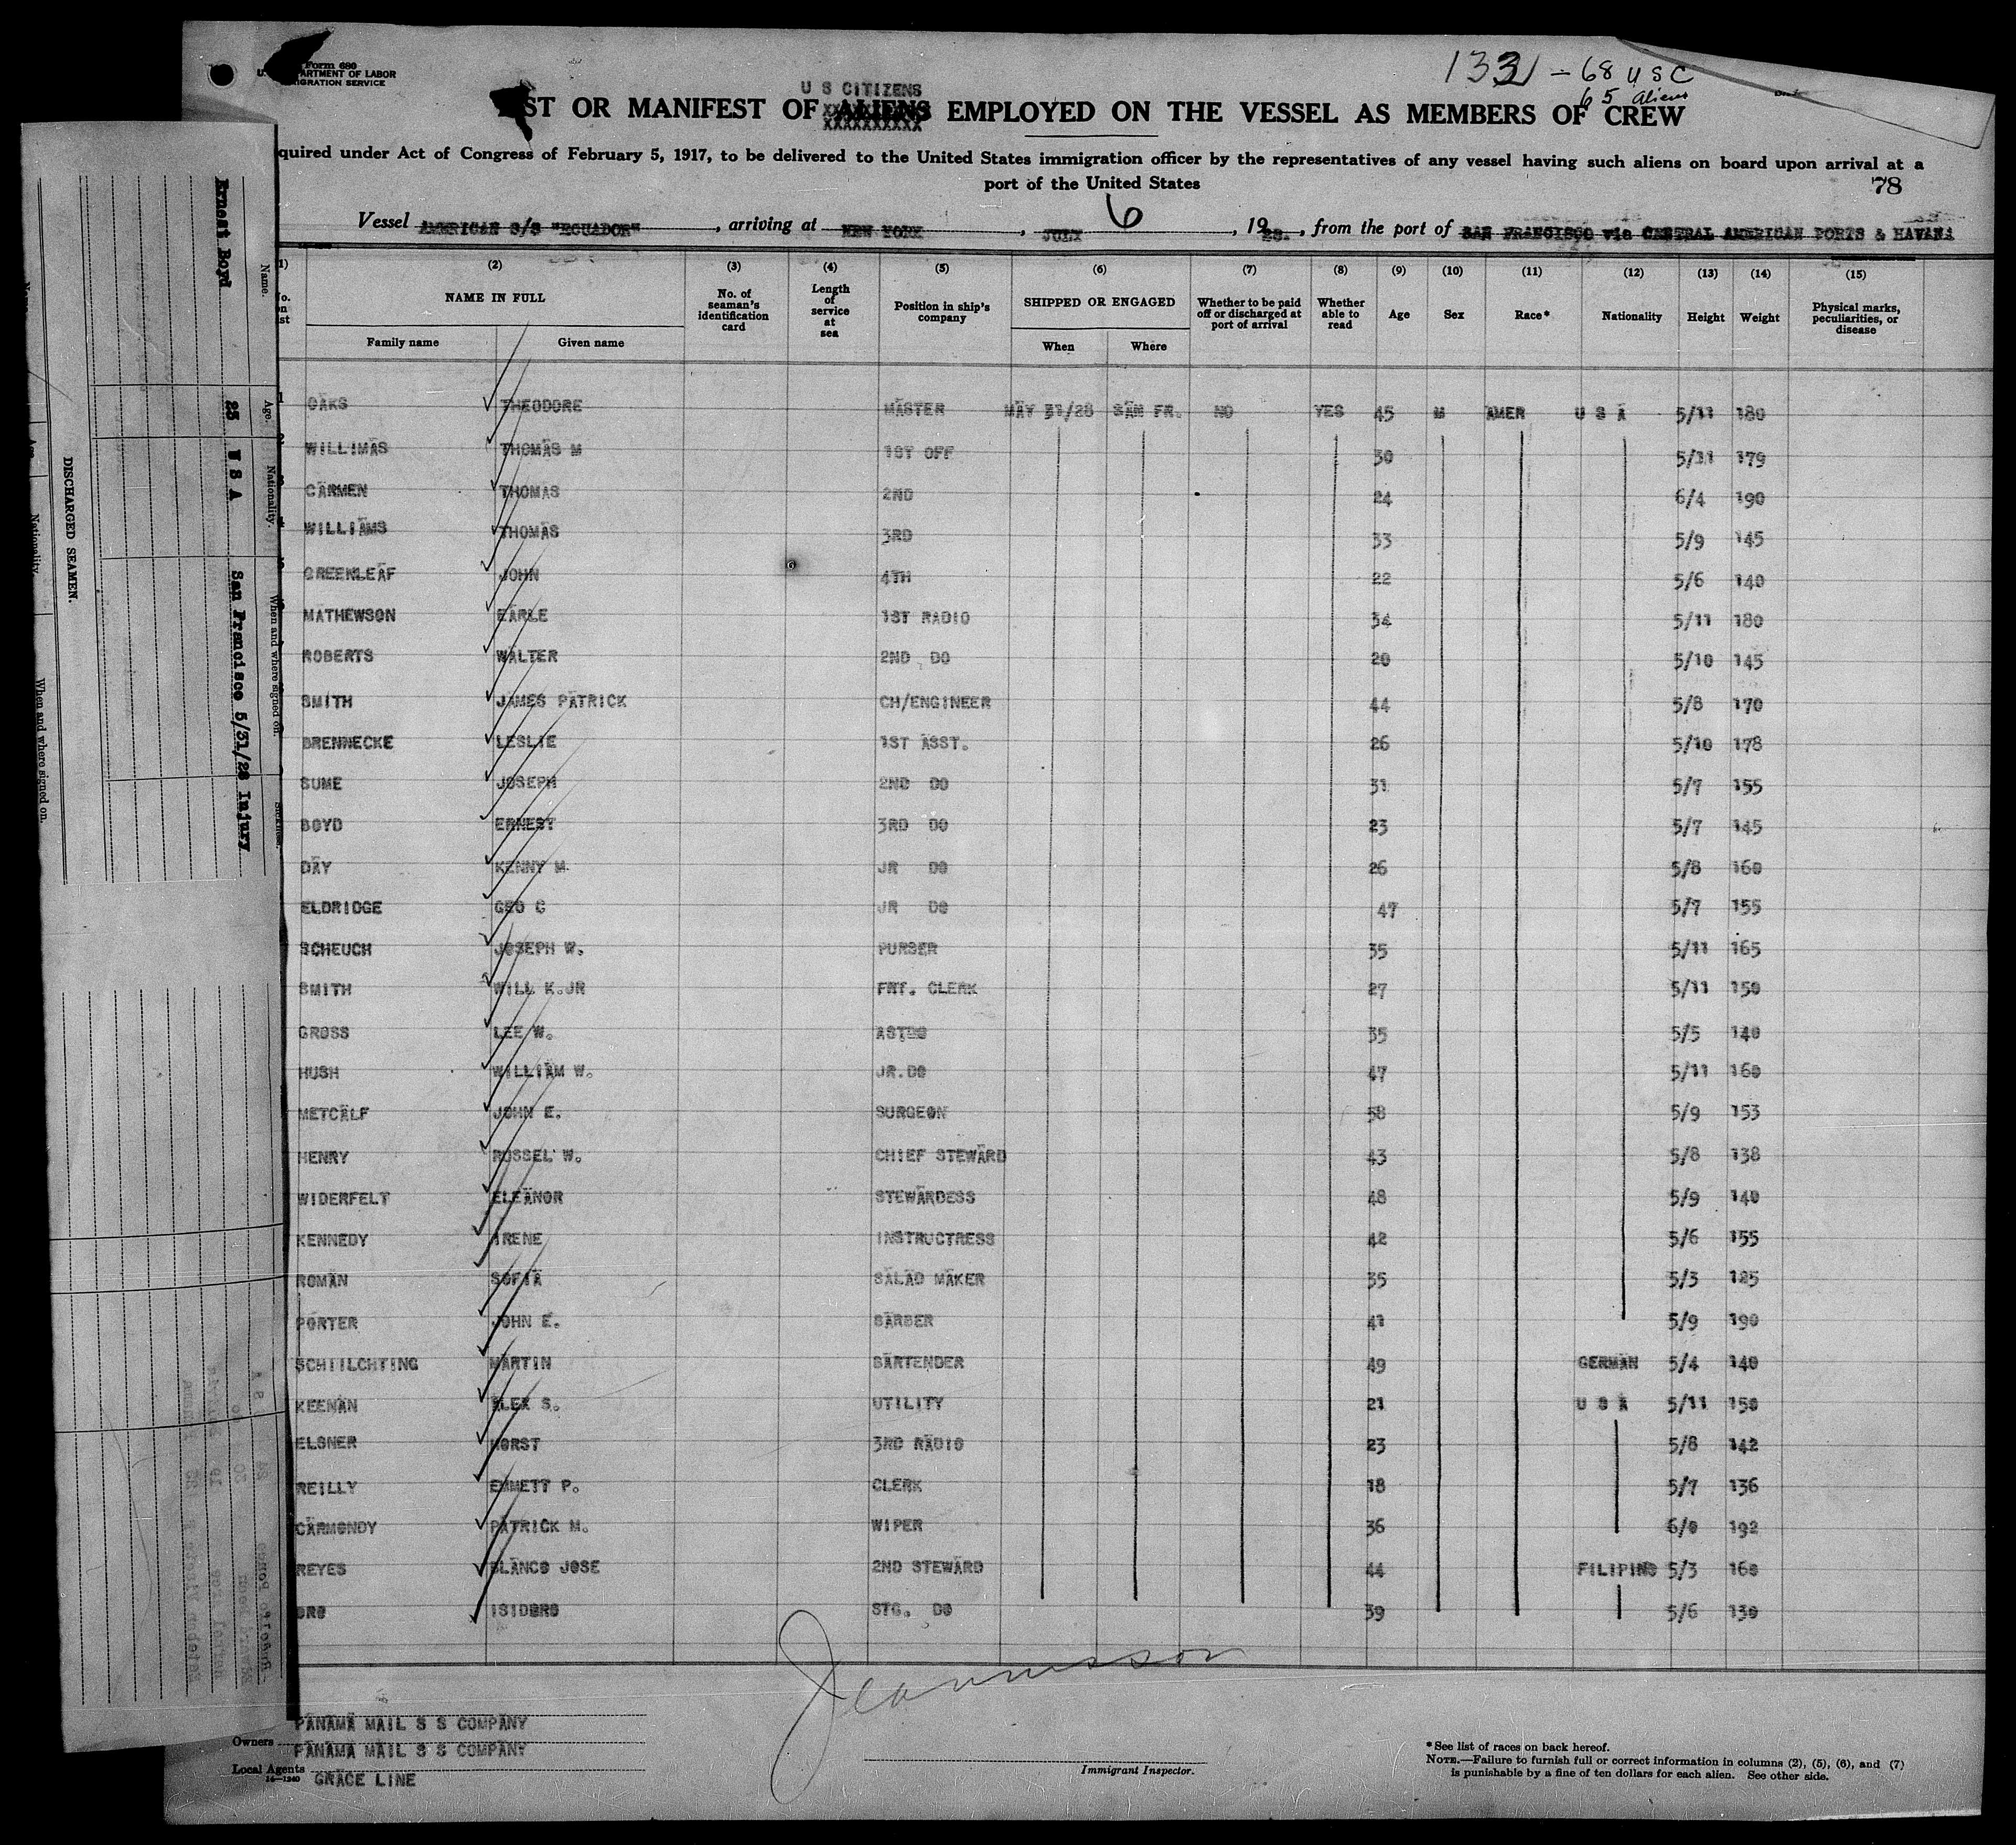 Form 680
U. ARTMENT OF LABOR
IGRATION SERVICE
133 - 68 U S C
65 Aliens
U S CITIZENS
ST OR MANIFEST OF ALIENS EMPLOYED ON THE VESSEL AS MEMBERS OF CREW
XXXXXXXXXX
quired under Act of Congress of February 5, 1917, to be delivered to the United States immigration officer by the representatives of any vessel having such aliens on board upon arrival at a
port of the United States
78
Vessel AMERICAN S/S "ECUADOR", arriving at NEW YORK, JULY 6, 1928., from the port of SAN FRANCISCO via CENTRAL AMERICAN PORTS & HAVANA
(1) (2) (3) (4) (5) (6) (7) (8) (9) (10) (11) (12) (13) (14) (15)
No. on list NAME IN FULL Family name Given name No. of seaman's identification card Length of service at sea Position in ship's company SHIPPED OR ENGAGED When Where Whether to be paid off or discharged at port of arrival Whether able to read Age Sex Race* Nationality Height Weight Physical marks, peculiarities, or disease
1 OAKS THEODORE MASTER MAY 31/28 SAN FR. NO YES 45 M AMER U S A 5/11 180
WILLIMAS THOMAS M 1ST OFF 30 5/11 179
CARMEN THOMAS 2ND 24 6/4 190
WILLIAMS THOMAS 3RD 33 5/9 145
GREENLEAF JOHN 4TH 22 5/6 140
MATHEWSON EARLE 1ST RADIO 34 5/11 180
ROBERTS WALTER 2ND DO 20 5/10 145
SMITH JAMES PATRICK CH/ENGINEER 44 5/8 170
BRENNECKE LESLIE 1ST ASST. 26 5/10 178
SUME JOSEPH 2ND DO 31 5/7 155
BOYD ERNEST 3RD DO 23 5/7 145
DAY KENNY M. JR DO 26 5/8 160
ELDRIDGE GEO C JR DO 47 5/7 155
SCHEUCH JOSEPH W. PURSER 35 5/11 165
SMITH WILL K.JR FRT. CLERK 27 5/11 150
GROSS LEE W. ASTDO 35 5/5 140
HUSH WILLIAM W. JR.DO 47 5/11 160
METCALF JOHN E. SURGEON 58 5/9 153
HENRY RUSSEL W. CHIEF STEWARD 43 5/8 138
WIDERFELT ELEANOR STEWARDESS 48 5/9 140
KENNEDY IRENE INSTRUCTRESS 42 5/6 155
ROMAN SOFIA SALAD MAKER 35 5/3 125
PORTER JOHN E. BARBER 41 5/9 190
SCHIILCHTING MARTIN BARTENDER 49 GERMAN 5/4 140
KEENAN ALEX S. UTILITY 21 U S A 5/11 150
ELSNER HORST 3RD RADIO 23 5/8 142
REILLY EMMETT P. CLERK 18 5/7 136
CARMONDY PATRICK M. WIPER 36 6/0 192
REYES BLANCO JOSE 2ND STEWARD 44 FILIPINO 5/3 160
ORO ISIDORO STG. DO 39 5/6 130
PANAMA MAIL S S COMPANY
Owners PANAMA MAIL S S COMPANY
Local Agents GRACE LINE
14-1240
Immigrant Inspector.
*See list of races on back hereof.
NOTE.—Failure to furnish full or correct information in columns (2), (5), (6), and (7)
is punishable by a fine of ten dollars for each alien. See other side.
DISCHARGED SEAMEN.
Name. Age. Nationality. When and where signed on. Sickness.
Ernest Boyd 25 U S A San Francisco 5/31/28 Injury
Nationality. When and where signed on.